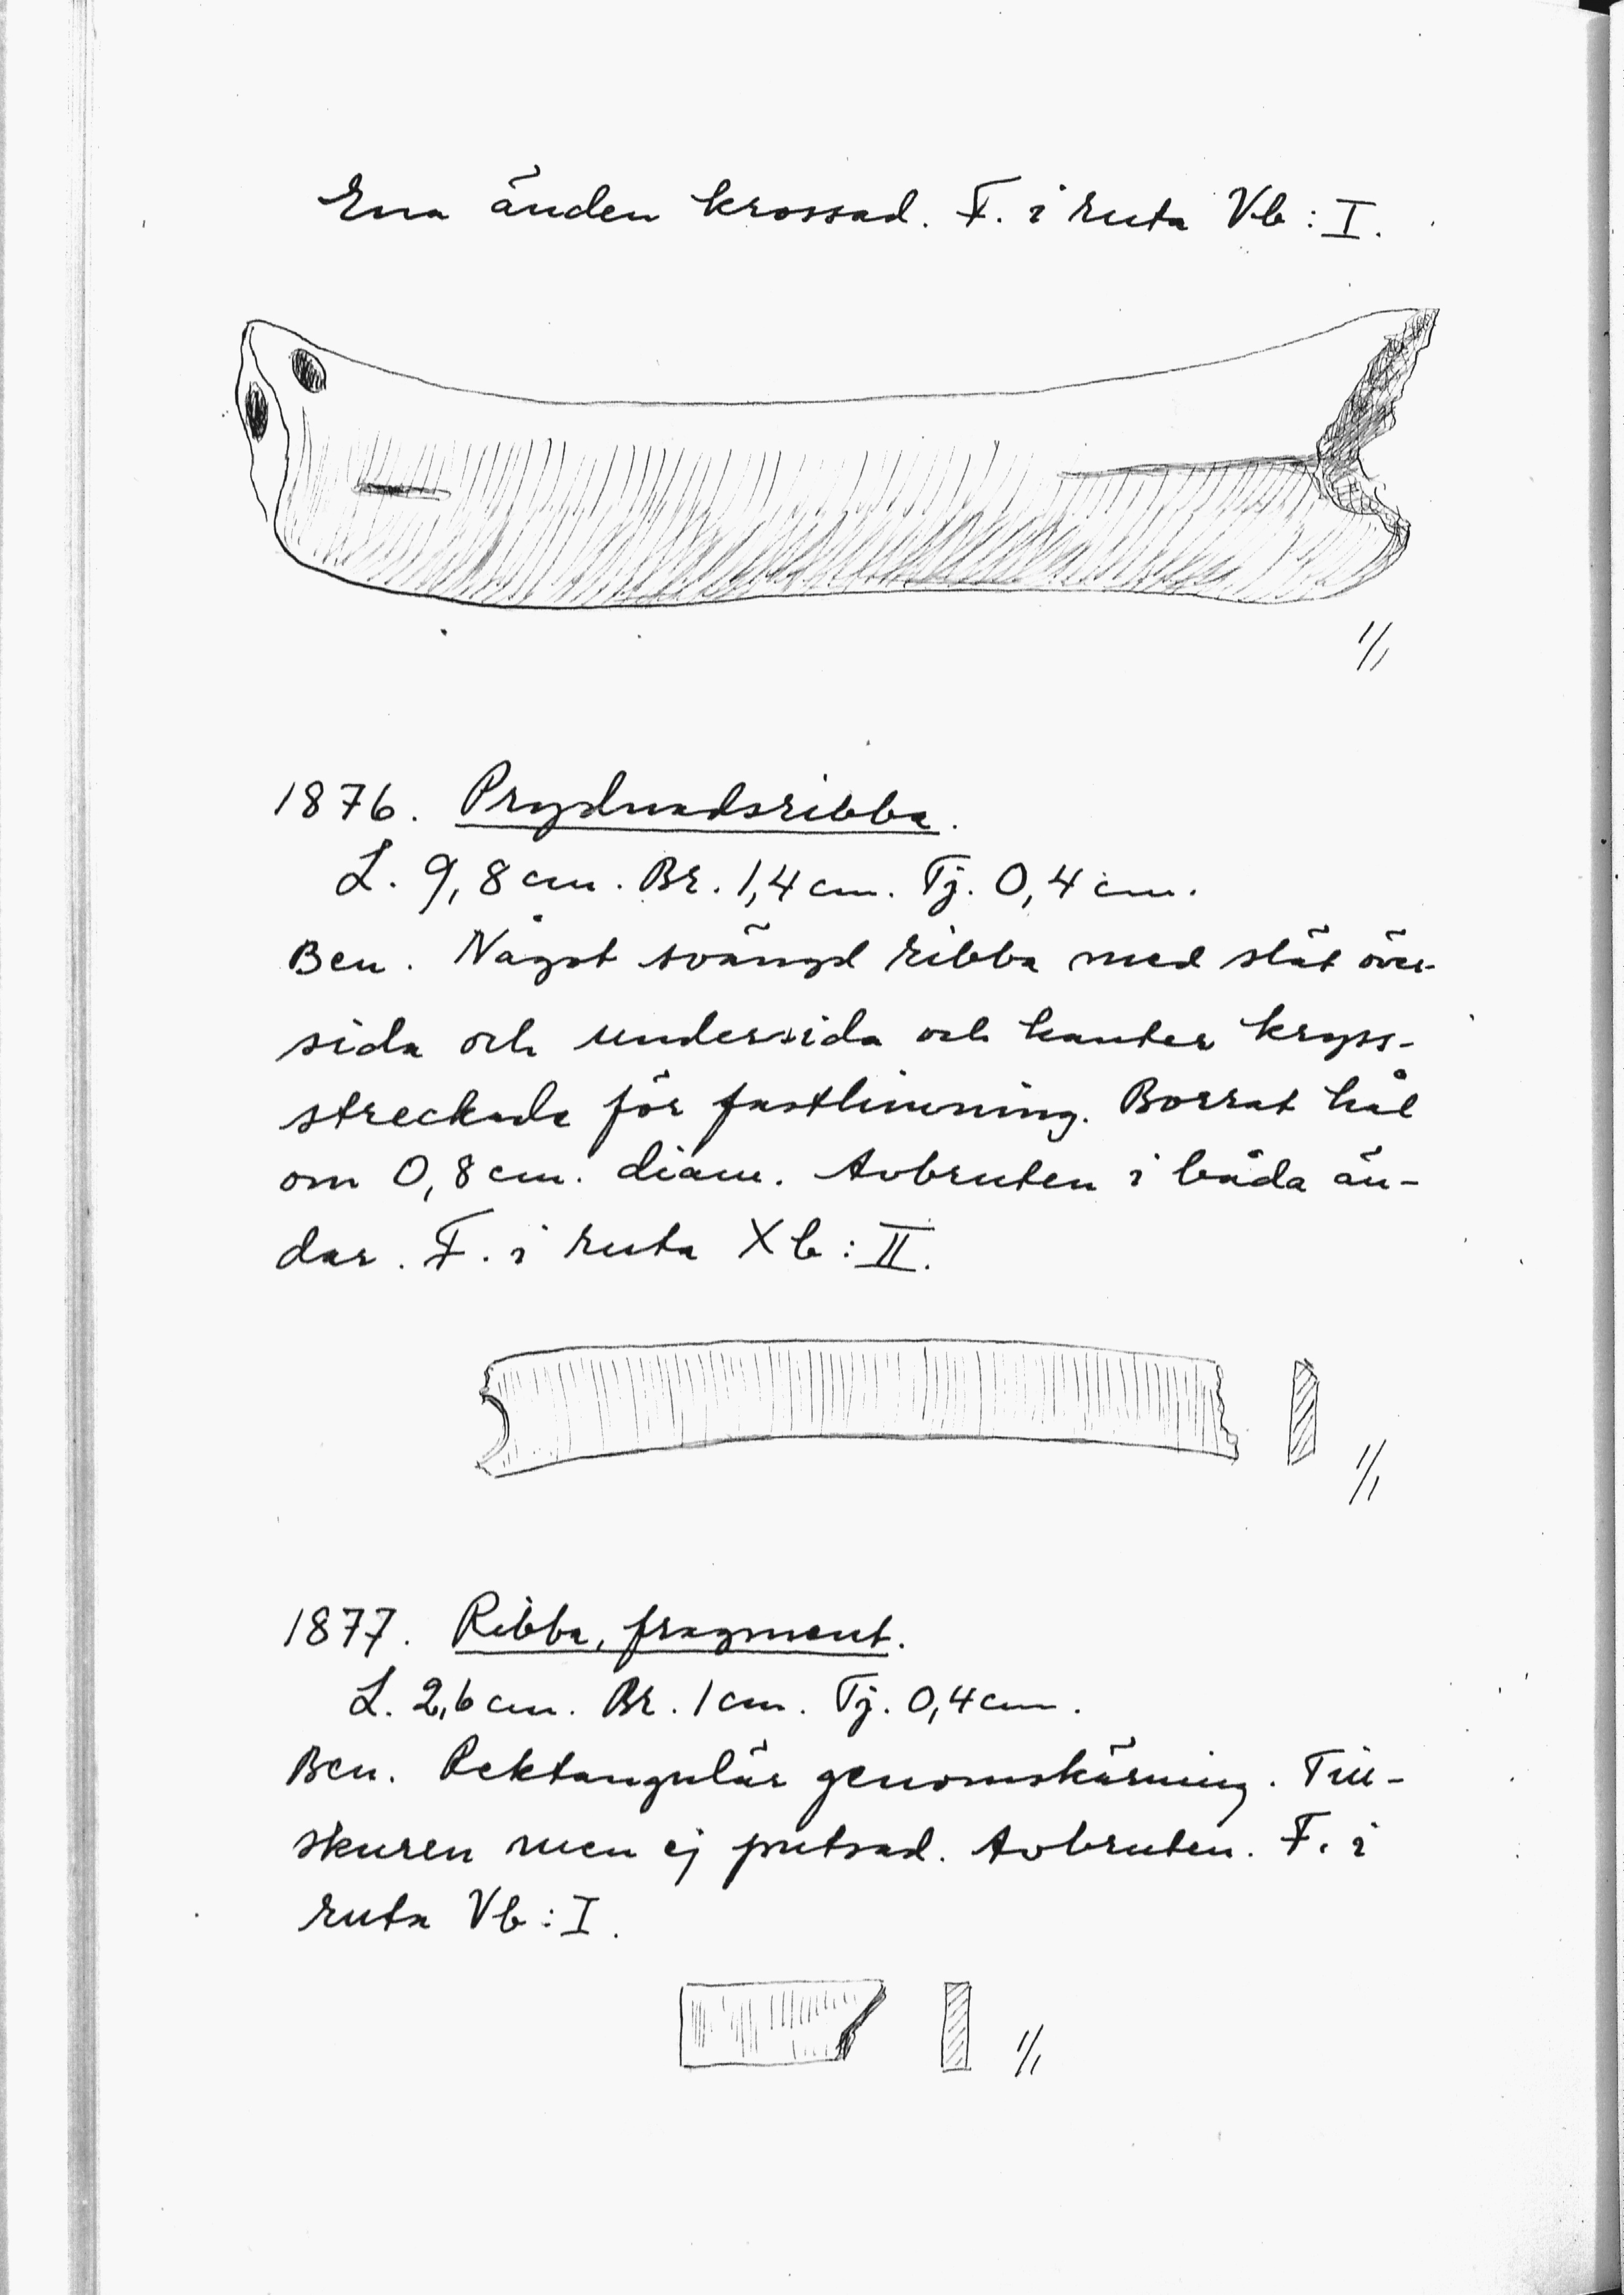 Ena änden krossad. F. i ruta Vb : I.
1/1
1876. Prydnadsribba.
L. 9,8 cm. Br. 1,4 cm. Tj. 0,4 cm.
Ben. Något svängd ribba med slät över-
sida och undersida och kanter kryss-
streckade för fastlimning. Borrat hål
om 0,8 cm. diam. Avbruten i båda än-
dar. F. i ruta Xb : II.
1/1
1877. Ribba, fragment.
L. 2,6 cm. Br. 1 cm. Tj. 0,4 cm.
Ben. Rektangulär genomskärning. Till-
skuren men ej putsad. Avbruten. F. i
ruta Vb : I.
1/1